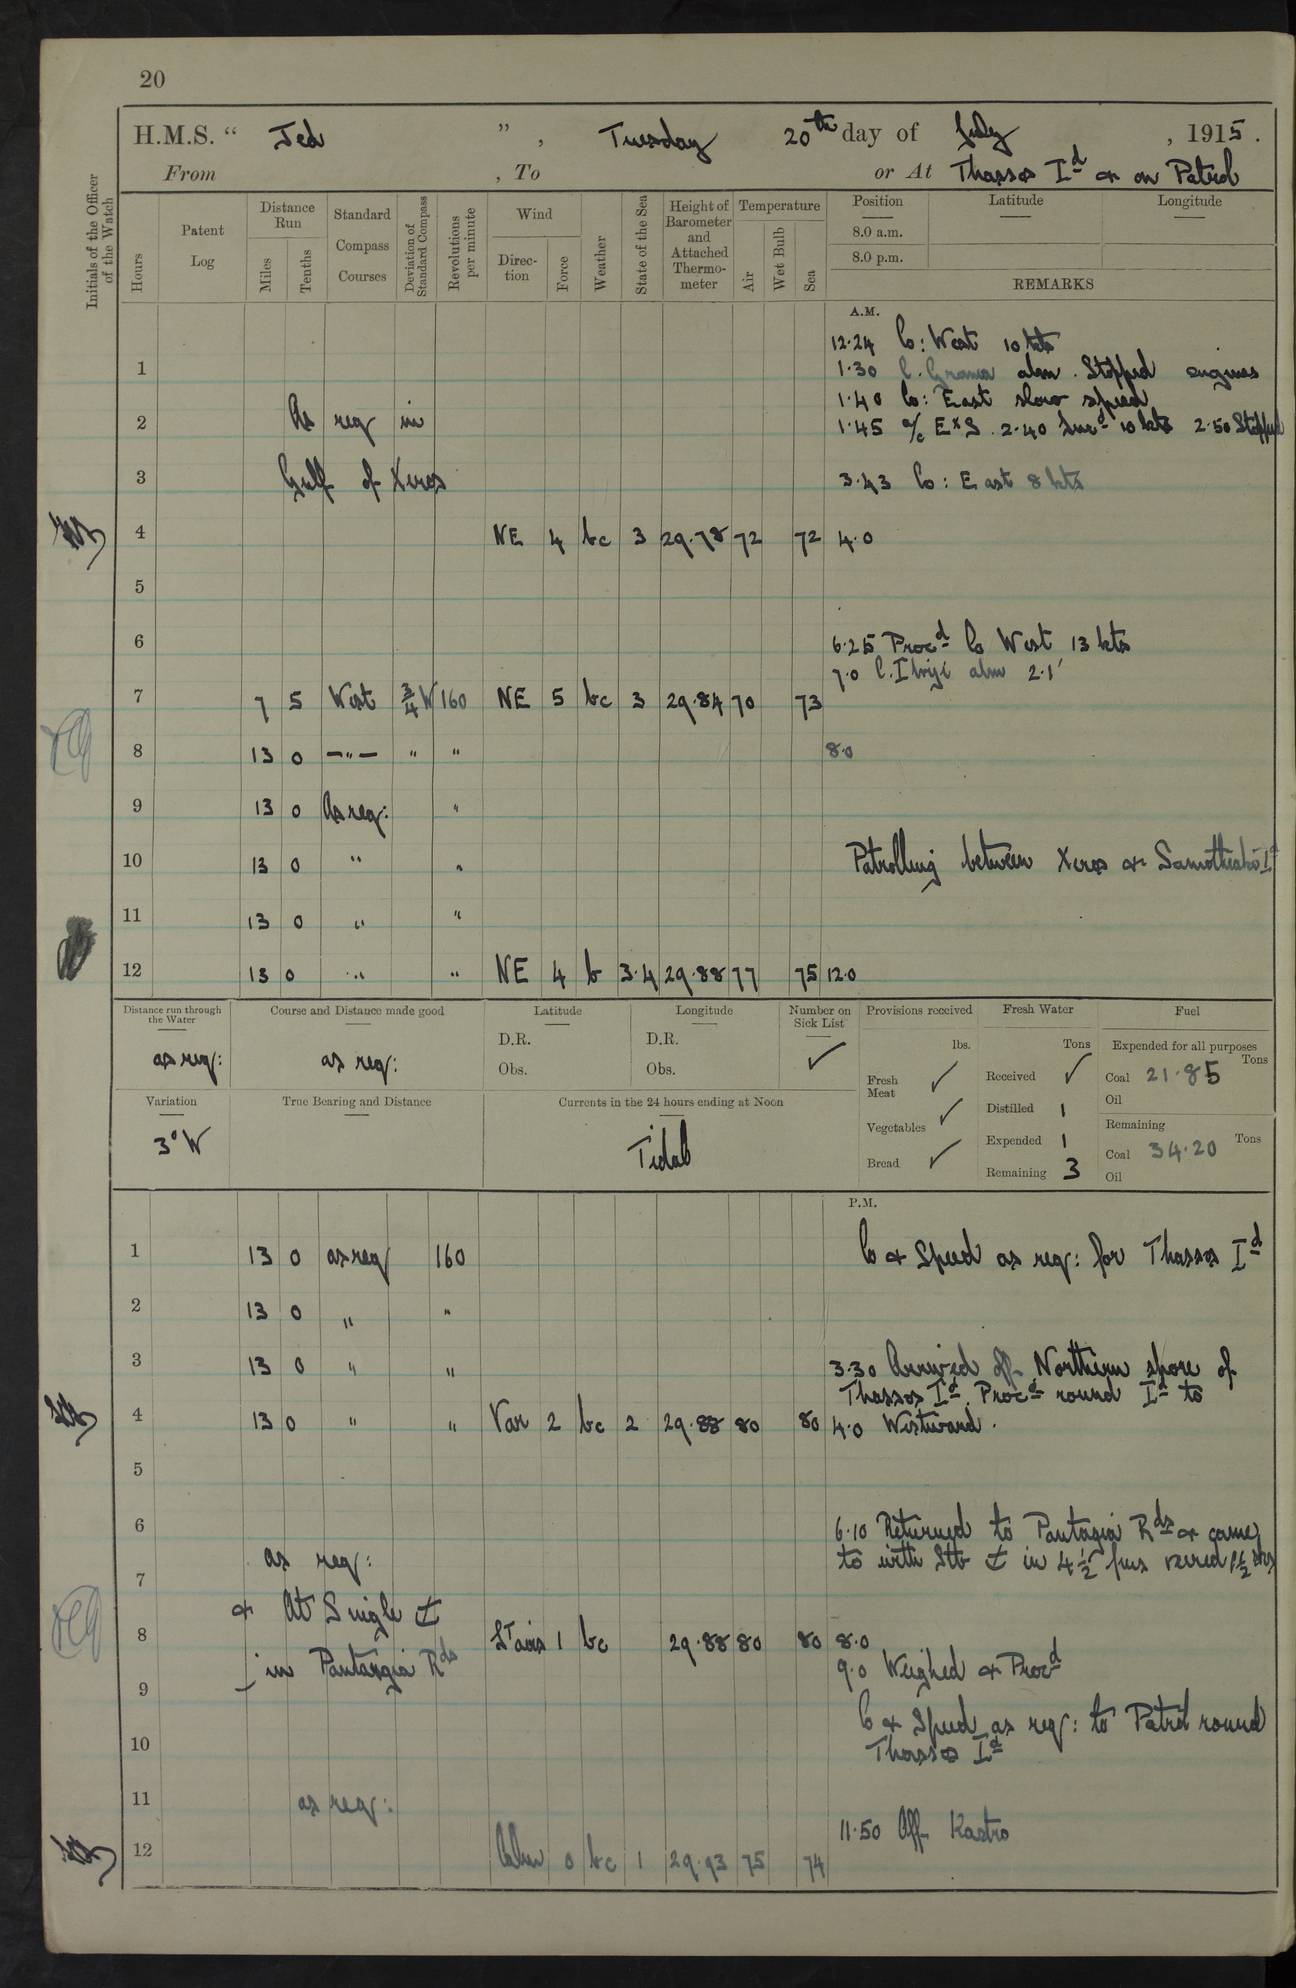 20
H.M.S. “ Jed ” , Tuesday 20th day of July , 1915 .
From , To or At Thassos Id & on Patrol
Initials of the Officer of the Watch
Hours
Patent Log
Distance Run
Miles
Tenths
Standard Compass Courses
Deviation of Standard Compass
Revolutions per minute
Wind
Direction
Force
Weather
State of the Sea
Height of Barometer and Attached Thermometer
Temperature
Air
Wet Bulb
Sea
Position
8.0 a.m.
8.0 p.m.
Latitude
Longitude
REMARKS
A.M.
12.24 Co: West 10 kts
1 1.30 C. Gremea abm. Stopped engines
1.40 Co: East slow speed
2 As req in 1.45 a/c E x S. 2.40 Incd 10 kts 2.50 Stopped
3 Gulf of Xeros 3.43 Co: East 8 kts
4 NE 4 bc 3 29.78 72 72 4.0
5
6 6.25 Procd Co West 13 kts
7.0 C. Ibriji abm 2.1'
7 7 5 West 3/4 W 160 NE 5 bc 3 29.84 70 73
8 13 0 —"— " " 8.0
9 13 0 As req: "
10 13 0 " " Patrolling between Xeros & Samothraki Id
11 13 0 " "
12 13 0 " " NE 4 b 3.4 29.88 77 75 12.0
Distance run through the Water
as req:
Course and Distance made good
as req:
Latitude
D.R.
Obs.
Longitude
D.R.
Obs.
Number on Sick List
✓
Provisions received
lbs.
Fresh Meat ✓
Vegetables ✓
Bread ✓
Fresh Water
Tons
Received ✓
Distilled 1
Expended 1
Remaining 3
Fuel
Expended for all purposes
Tons
Coal 21.85
Oil
Remaining
Tons
Coal 34.20
Oil
Variation
3° W
True Bearing and Distance
Currents in the 24 hours ending at Noon
Tidal
P.M.
1 13 0 as req 160 Co & Speed as req: for Thassos Id
2 13 0 " "
3 13 0 " " 3.30 Arrived off Northern shore of
Thassos Id. Procd round Id to
4 13 0 " " Var 2 bc 2 29.88 80 80 4.0 Westward.
5
6 6.10 Returned to Pantagia Rds & came
as req: to with Stb ⚓ in 4 1/2 fms veered 1 1/2 shs
7
& At Single ⚓
8 Lt airs 1 bc 29.88 80 80 8.0
in Pantagia Rds 9.0 Weighed & Procd
9
Co & Speed as req: to Patrol round
10 Thassos Id
11 as req:
11.50 Off Kastro
12 Calm 0 bc 1 29.93 75 74